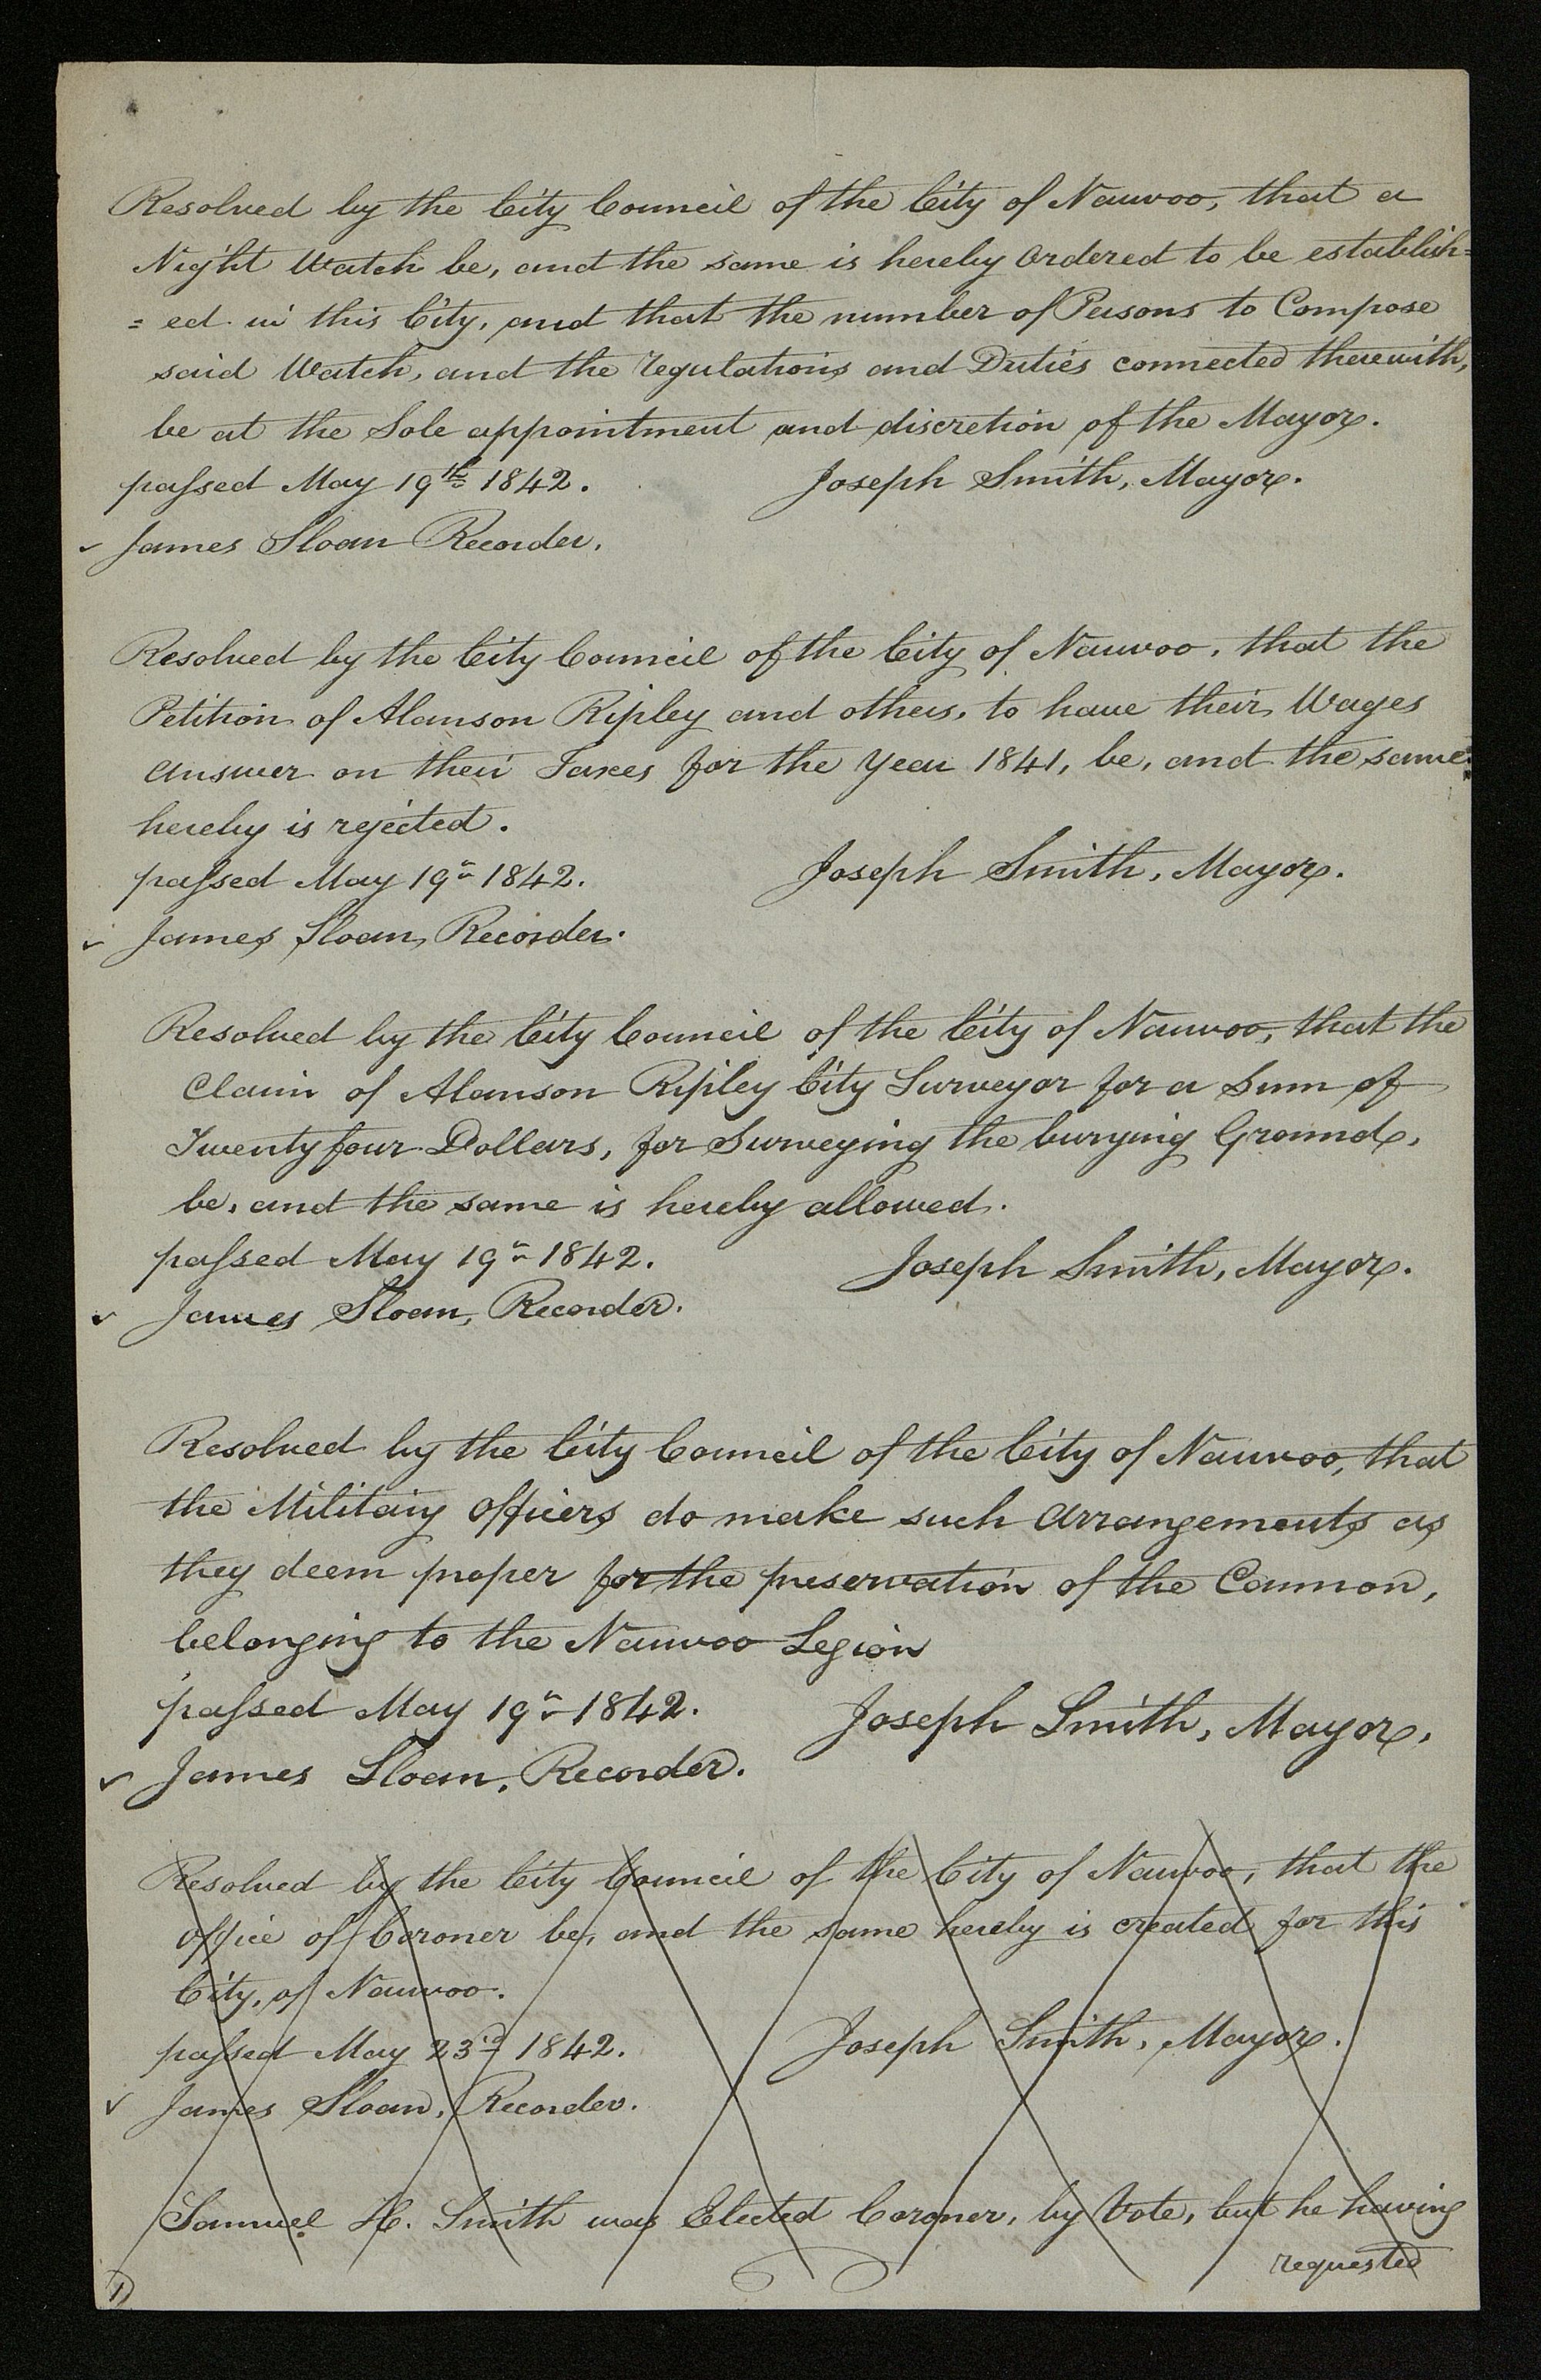 Resolved by the City Council of the City of Nauvoo, that a
Night Watch be, and the same is hereby Ordered to be establish=
= ed in this City, and that the number of Persons to Compose
said Watch, and the regulations and Duties connected therewith,
be at the Sole appointment and discretion of the Mayor.
passed May 19th 1842. Joseph Smith, Mayor.
✓ James Sloan Recorder.
Resolved by the City Council of the City of Nauvoo, that the
Petition of Alanson Ripley and others, to have their Wages
answer on their Taxes for the Year 1841, be, and the same
hereby is rejected.
passed May 19th 1842. Joseph Smith, Mayor.
✓ James Sloan, Recorder.
Resolved by the City Council of the City of Nauvoo, that the
Claim of Alanson Ripley City Surveyor for a Sum of
Twenty four Dollars, for Surveying the burying Ground,
be, and the same is hereby allowed.
passed May 19th 1842. Joseph Smith, Mayor.
✓ James Sloan, Recorder.
Resolved by the City Council of the City of Nauvoo, that
the Military Officers do make such Arrangements as
they deem proper for the preservation of the Cannon,
belonging to the Nauvoo Legion
passed May 19th 1842. Joseph Smith, Mayor.
✓ James Sloan, Recorder.
Resolved by the City Council of the City of Nauvoo, that the
office of Coroner be, and the same hereby is created for this
City, of Nauvoo.
passed May 23rd 1842. Joseph Smith, Mayor.
✓ James Sloan, Recorder.
Samuel H. Smith was Elected Coroner, by Vote, but he having
requested
1)